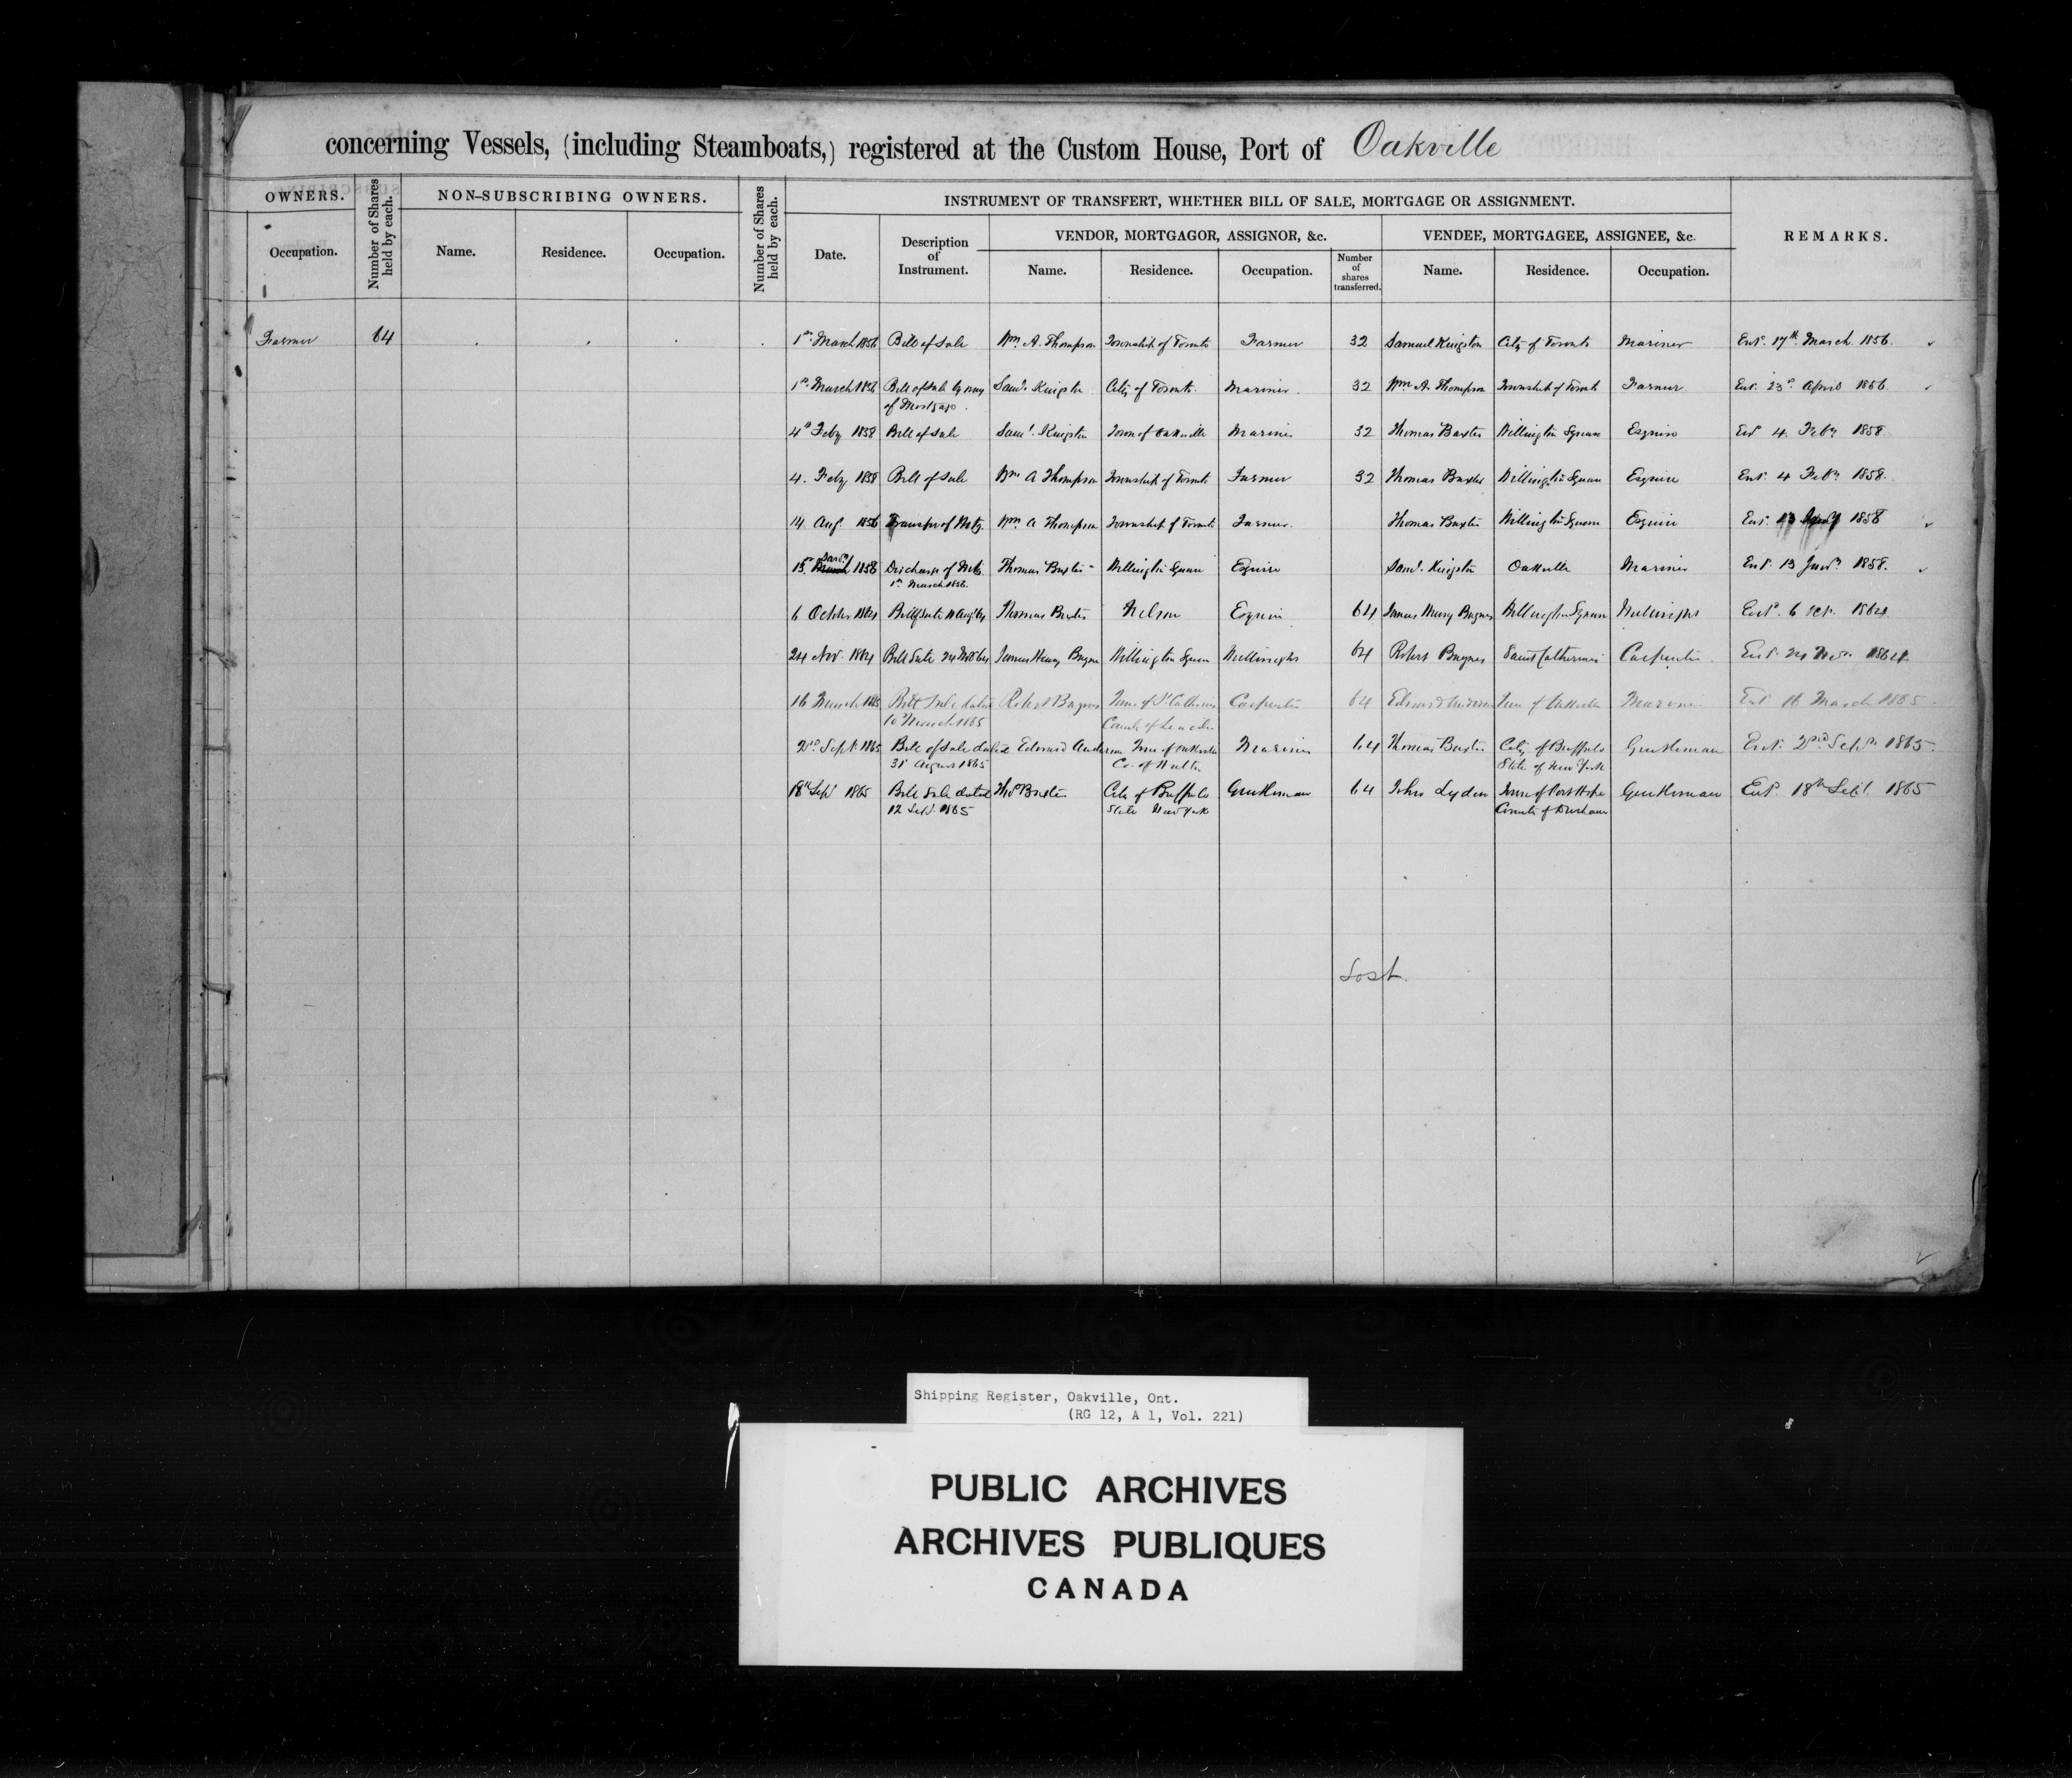 concerning Vessels, (including Steamboats,) registered at the Custom House, Port of Oakville
OWNERS. Number of Shares held by each. NON-SUBSCRIBING OWNERS. Number of Shares held by each. INSTRUMENT OF TRANSFERT, WHETHER BILL OF SALE, MORTGAGE OR ASSIGNMENT. REMARKS.
VENDOR, MORTGAGOR, ASSIGNOR, &c. VENDEE, MORTGAGEE, ASSIGNEE, &c.
Occupation. Name. Residence. Occupation. Date. Description of Instrument. Name. Residence. Occupation. Number of shares transferred. Name. Residence. Occupation.
Farmer 64 1st March 1856 Bill of Sale Wm A. Thompson Township of Toronto Farmer 32 Samuel Kingston City of Toronto Mariner Entd. 17th March 1856.
1st March 1856 Bill of Sale by way Saml. Kingston City of Toronto Mariner. 32 Wm A. Thompson Township of Toronto Farmer Ent. 23d April 1856
of Mortgage.
4th Feby 1858 Bill of Sale Saml. Kingston Town of Oakville Mariner 32 Thomas Baxter Wellington Square Esquire Ent 4. Feby 1858.
4. Feby 1858 Bill of Sale Wm A Thompson Township of Toronto Farmer 32 Thomas Baxter Wellington Square Esquire Ent. 4 Feby 1858.
14 Aug. 1856 Transfer of Mtg. Wm A Thompson Township of Toronto Farmer. Thomas Baxter Wellington Square Esquire Ent. 13 1858
Jany
13 March 1858 Discharge of Mtg. Thomas Baxter Wellington Square Esquire Saml. Kingston Oakville Mariner Ent. 13 Jany. 1858.
1st March 1856.
6 October 1864 Bill of Sale Thomas Baxter Nelson Esquire 64 James Henry Wellington Square Entd. 6 Oct. 1864
24 Nov. 1864 Bill Sale 24 Nov 64 James Henry Wellington Square 64 Robert Saint Catherines Carpenter. Ent. 24 Nov. 1864.
16 March 1865 Bill Sale dated Robert Town of St Catherines Carpenter 64 Edward Anderson Town of Oakville Mariner Ent. 16 March 1865.
10 March 1865 County of Lincoln
2nd Sept. 1865 Bill of Sale dated Edward Anderson Town of Oakville Mariner 64 Thomas Baxter City of Buffalo Gentleman Ent. 2nd Sept. 1865.
31 August 1865 Co. of Halton State of New York
18th Sept 1865 Bill Sale dated Thos Baxter City of Buffalo Gentleman 64 John Lyden Town of Port Hope Gentleman Ent. 18th Sept. 1865
12 Sept. 1865 State New York County of Durham
Lost.
Shipping Register, Oakville, Ont.
(RG 12, A 1, Vol. 221)
PUBLIC ARCHIVES
ARCHIVES PUBLIQUES
CANADA